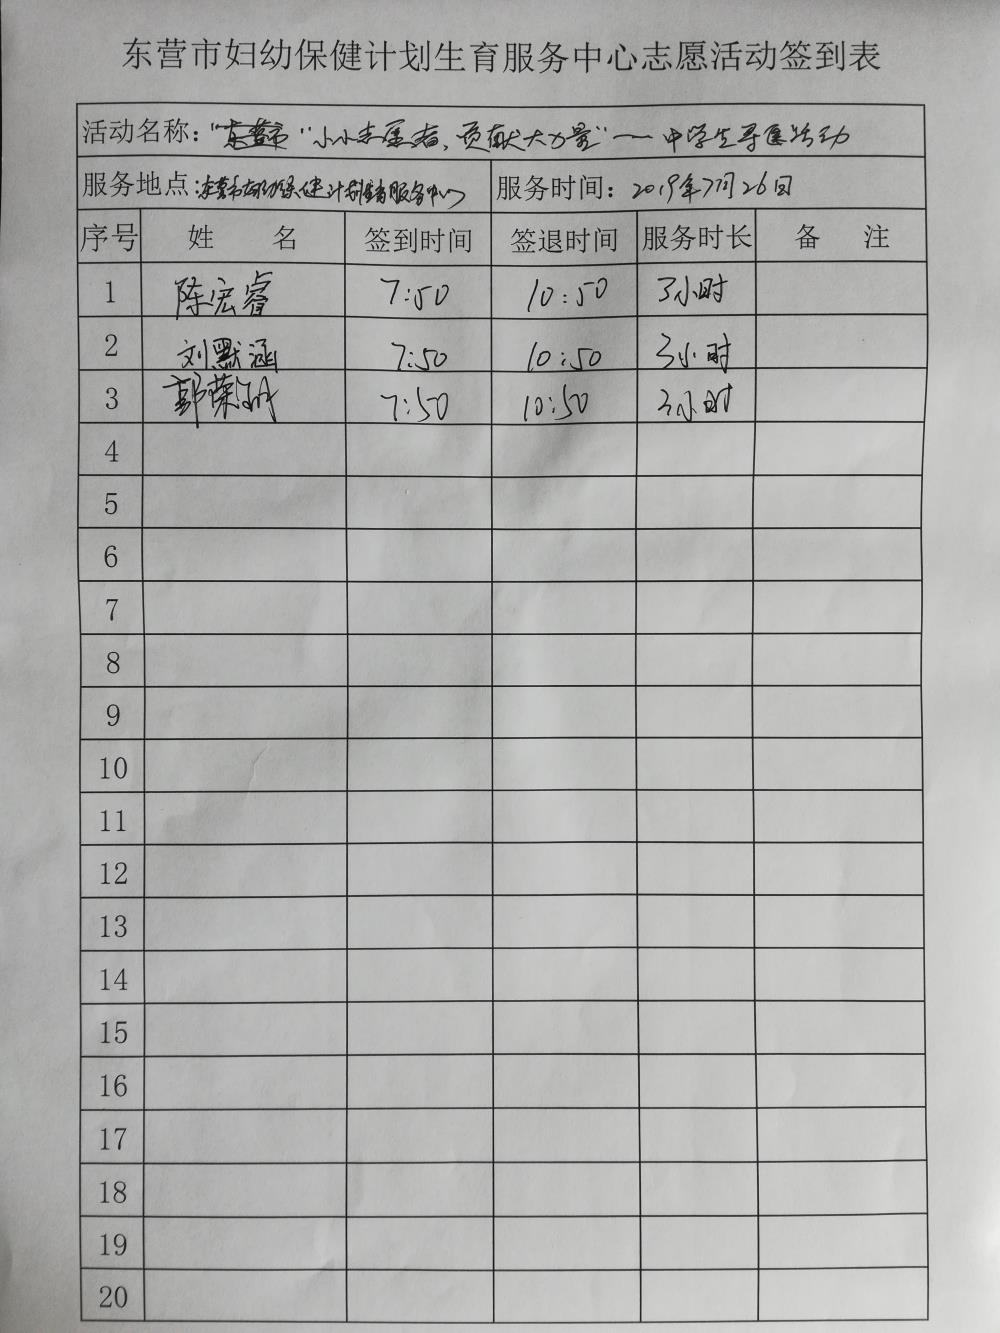 东营市妇幼保健计划生育服务中心志愿活动签到表
活动名称："小小志愿者、贡献大力量"——中学生导医活动
服务地点：东营市妇幼保健计划生育服务中心 服务时间：2019年7月26日
序号 姓 名 签到时间 签退时间 服务时长 备 注
1 陈宏睿 7:50 10:50 3小时
2 刘默涵 7:50 10:50 3小时
3 郭荣 7:50 10:50 3小时
4
5
6
7
8
9
10
11
12
13
14
15
16
17
18
19
20